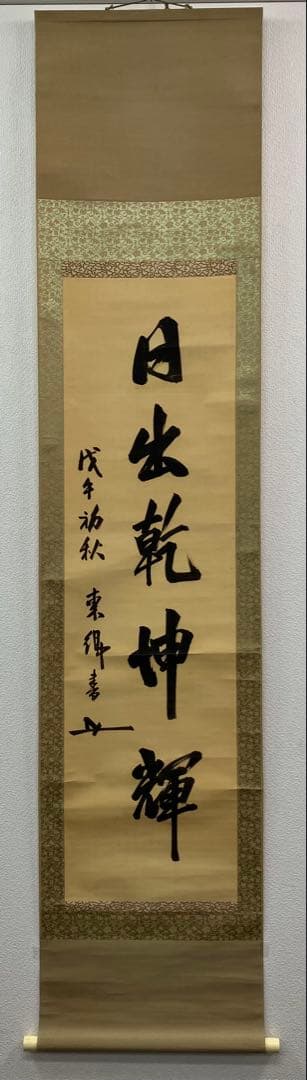 日出乾坤輝
戊午初秋 東郷書